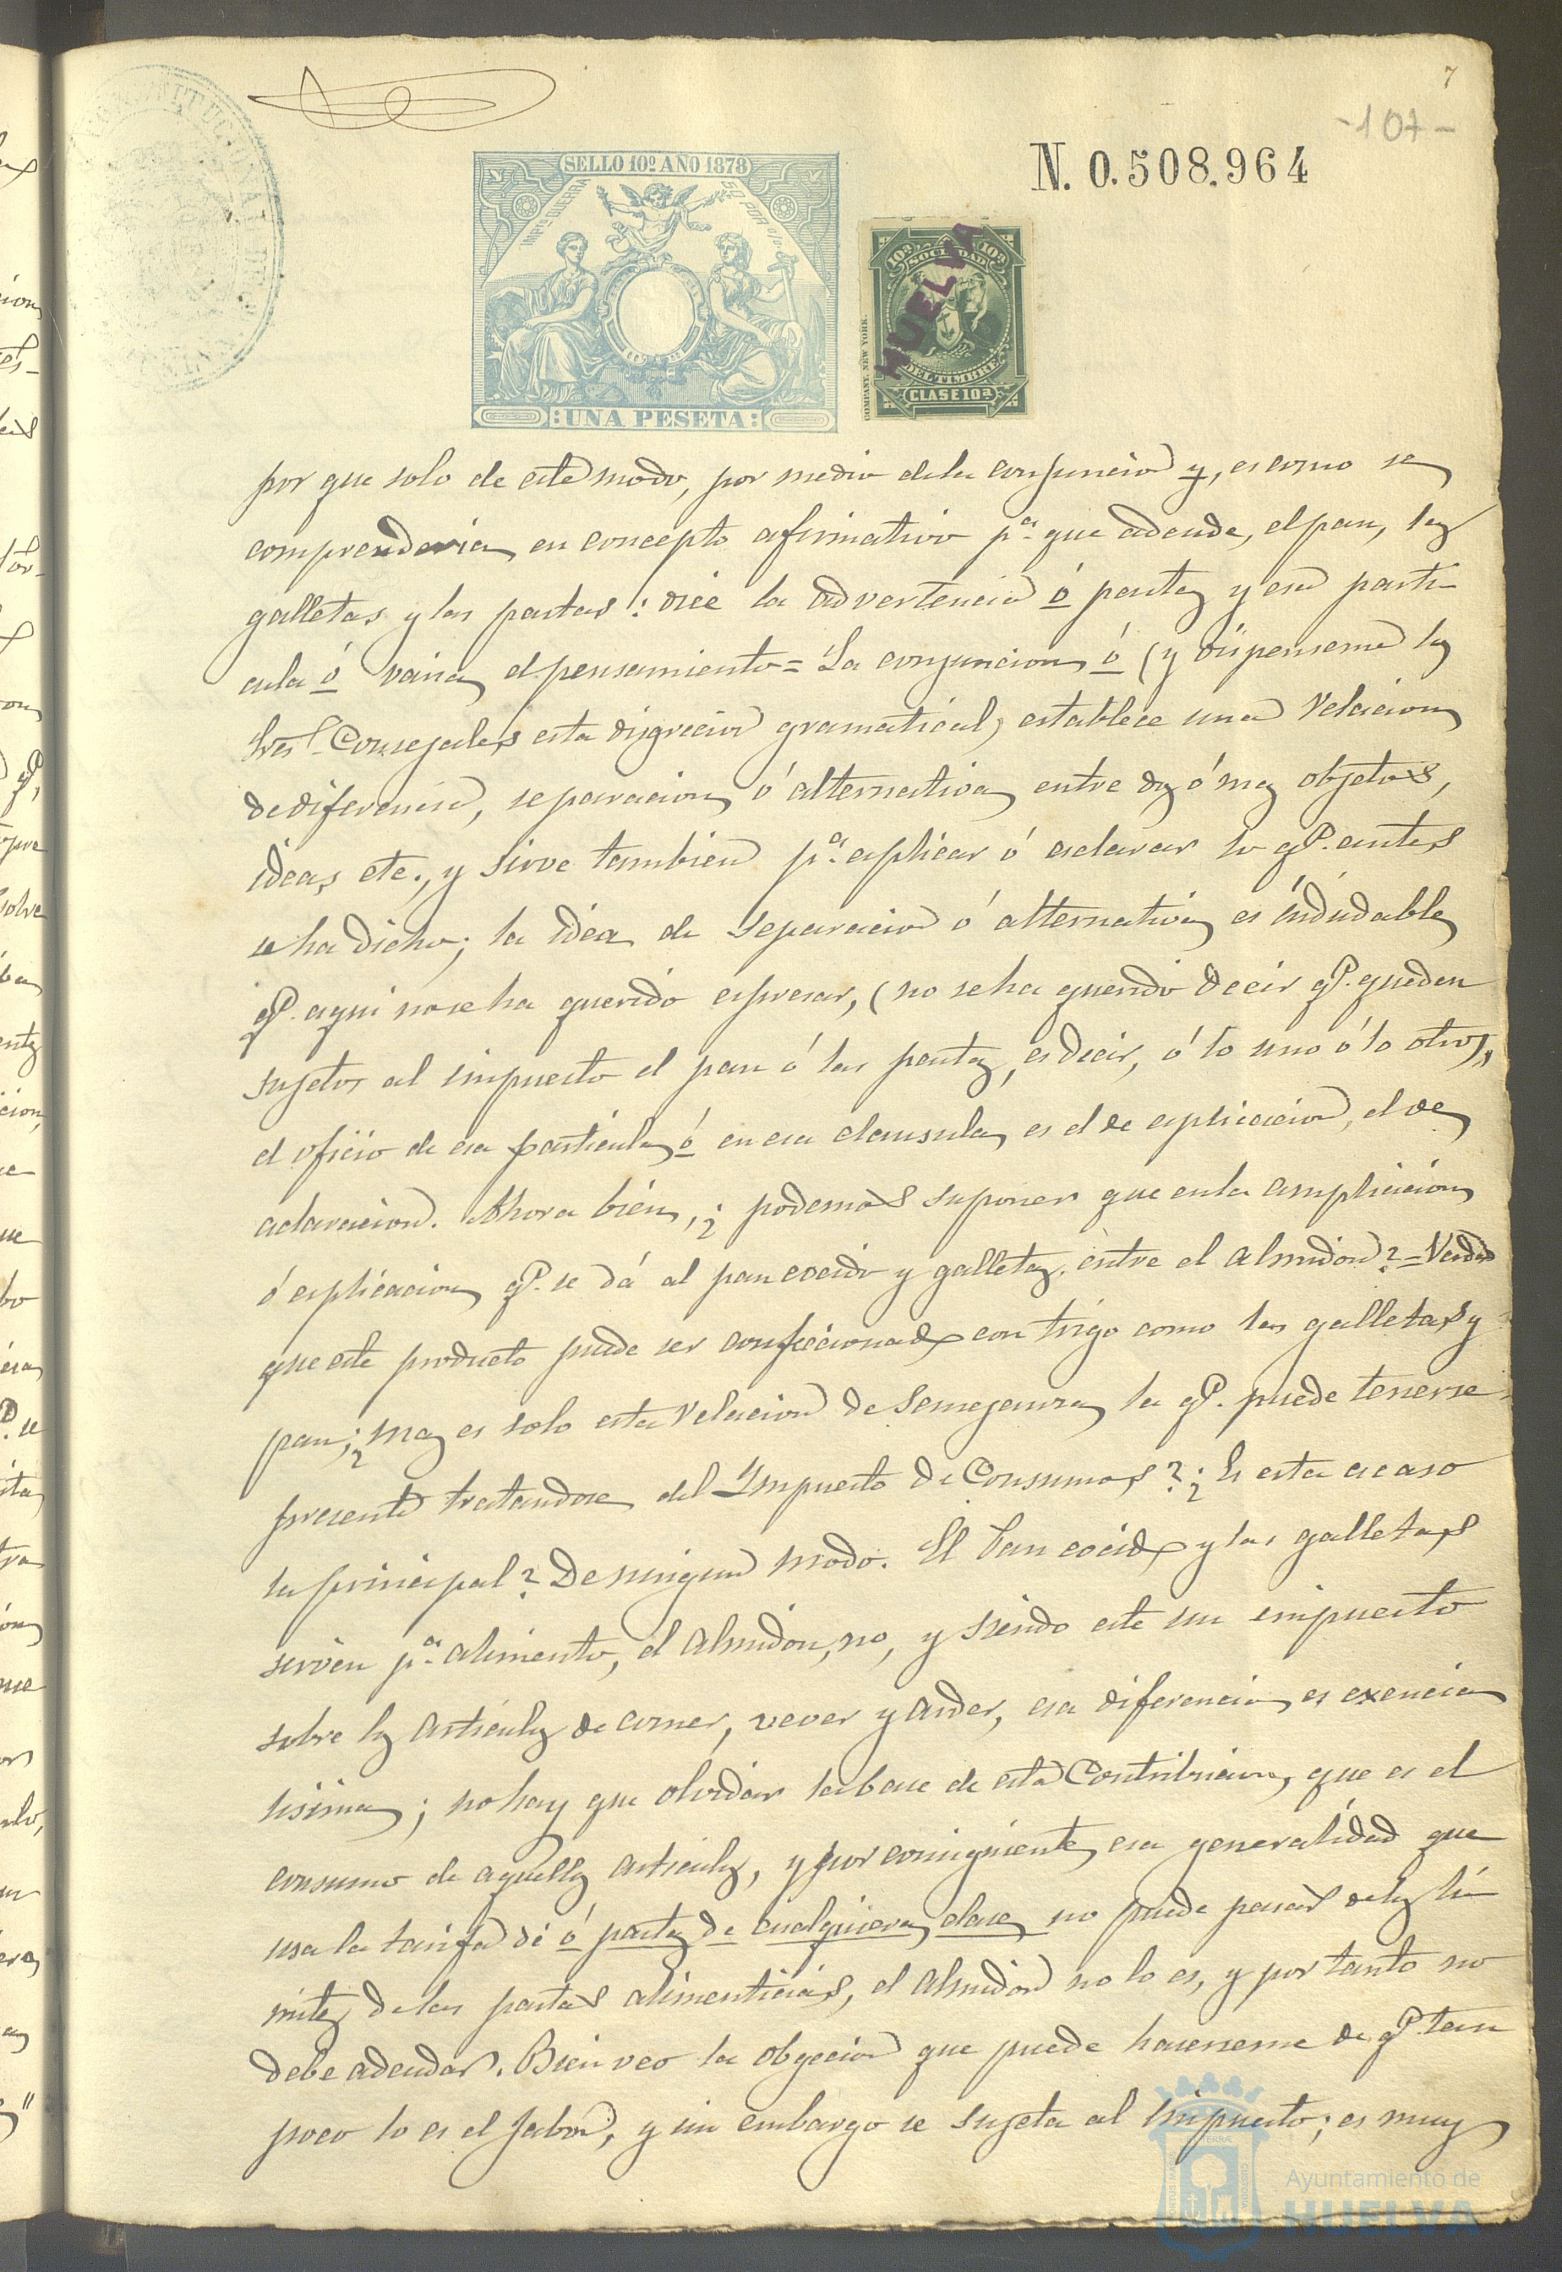 7
-107-
N. 0.508.964
SELLO 10º AÑO 1878
IMPto GUERRA
50 POR 0/0
UNA PESETA
10ª SOCIEDAD 10ª
DEL TIMBRE
CLASE 10ª
COMPANY. NEW YORK.
HUELVA
por que solo de este modo, por medio de la conjuncion y, es como se
comprenderia en concepto afirmativo pª que adeude, el pan, las
galletas y las pastas: dice la advertencia ó pastas y esa parti-
cula ó varia el pensamiento = La conjuncion ó (y dispenseme los
Sres. Concejales esta digrecion gramatical) establece una relacion
de diferencia, separacion ó alternativa entre dos ó mas objetos,
ideas, etc., y sirve tambien pª esplicar ó aclarar lo qe. antes
se ha dicho; la idea de separacion ó alternativa es indudable
qe. aqui no se ha querido espresar, (no se ha querido decir qe. queden
sujetos al impuesto el pan ó las pastas, es decir, ó lo uno ó lo otro),
el oficio de esa particula ó en esa clausula es el de esplicacion, el de
aclaracion. Ahora bien, ¿podemos suponer que en la ampliacion
ó esplicacion qe. se dá al pan cocido y galletas, entre el almidon? = Verdad
que este producto puede ser confeccionado con trigo como las galletas y
pan; ¿mas es solo esta relacion de semejanza la qe. puede tenerse
presente tratandose del Impuesto de Consumos? ¿Es esta acaso
la principal? De ningun modo. El Pan cocido y las galletas
sirven pª alimento, el almidon, no, y siendo este un impuesto
sobre los articulos de comer, vever y arder, esa diferencia es exencia
lisima; no hay que olvidar la base de esta Contribucion, que es el
consumo de aquellos articulos, y por consiguiente esa generalidad que
usa la tarifa de ó pastas de cualquiera clase no puede pasar de los li-
mites de las pastas alimenticias, el almidon no lo es, y por tanto no
debe adeudar. Bien veo la obgecion que puede hacerseme de qe. tam
poco lo es el Jabon, y sin embargo se sujeta al impuesto; es muy
Ayuntamiento de
HUELVA